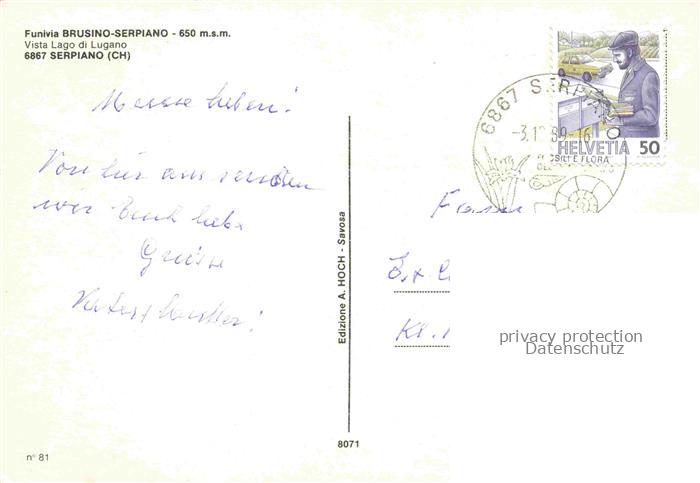 Funivia BRUSINO-SERPIANO - 650 m.s.m.
Vista Lago di Lugano
6867 SERPIANO (CH)
Meine Lieben!
Von hir aus senden
wir Euch liebe
Grüsse
Vater + Mutter!
Edizione A. HOCH - Savosa
8071
n° 81
6867 SERPIANO
-3.10.89-16
FOSSILI E FLORA
HELVETIA 50
Kl.
privacy protection
Datenschutz